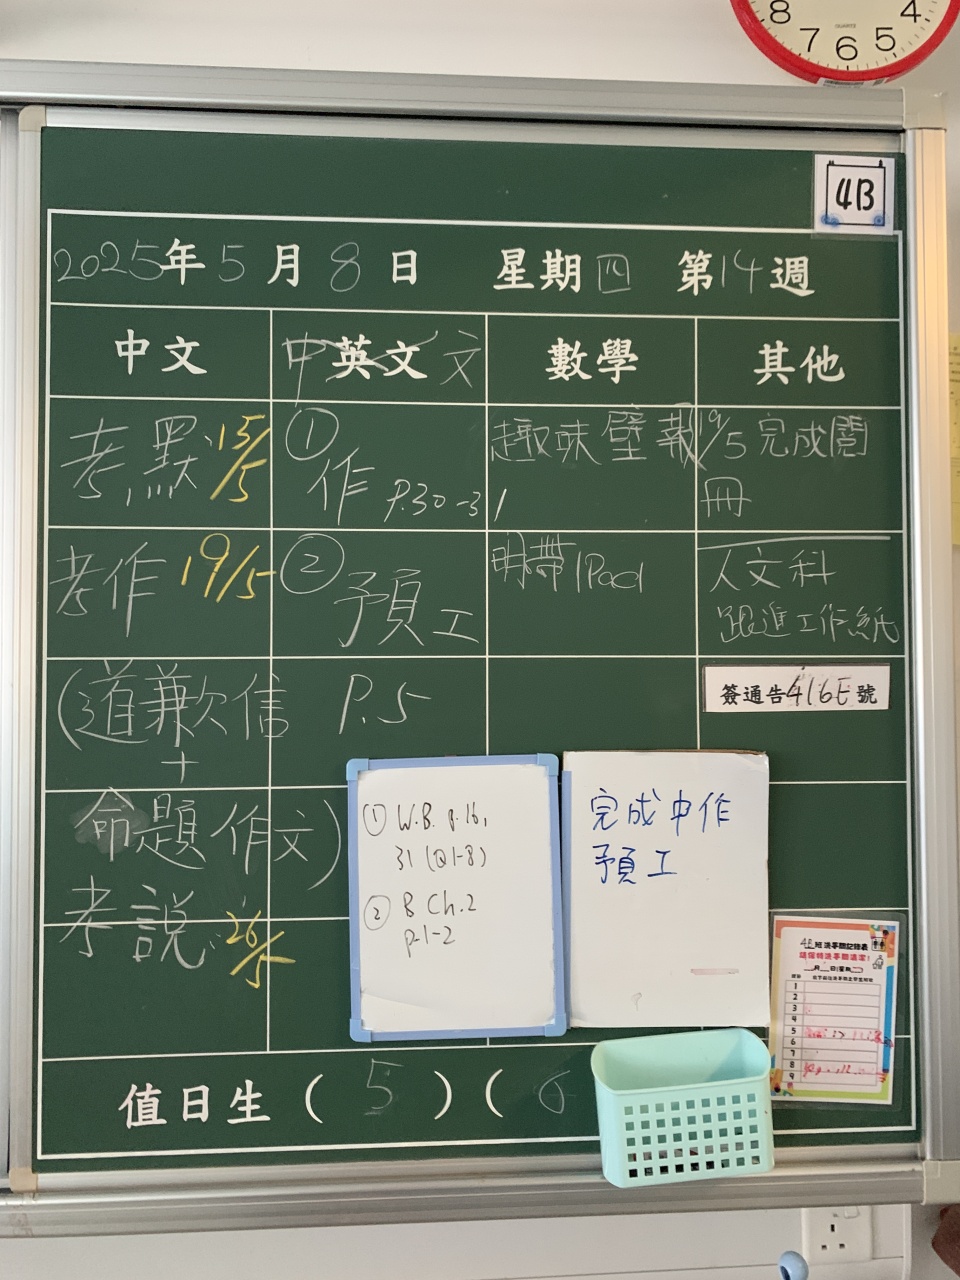 8 7 6 5 4
QUARTZ
4B
2025年5月8日 星期四 第14週
中文
中英文文
數學
其他
考默 15/5
① 作 P.30-31
趣味壁報
19/5 完成閱冊
考作 19/5
② 預工
明帶 iPad
人文科
跟進工作紙
(道歉信
P.5
簽通告416E號
+
命題作文)
考說 26/5
① W.B. p.16,
31 (Q1-8)
② B Ch.2
p.1-2
完成中作
預工
4B
1
2
3
4
5
6
7
8
9
值日生 ( 5 ) ( 6